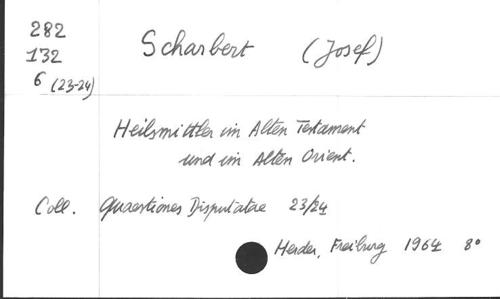 282
132
6 (23-24)
Scharbert (Josef)
Heilsmittler im Alten Testament
und im Alten Orient.
Coll. Quaestiones Disputatae 23/24
Herder, Freiburg 1964 8°